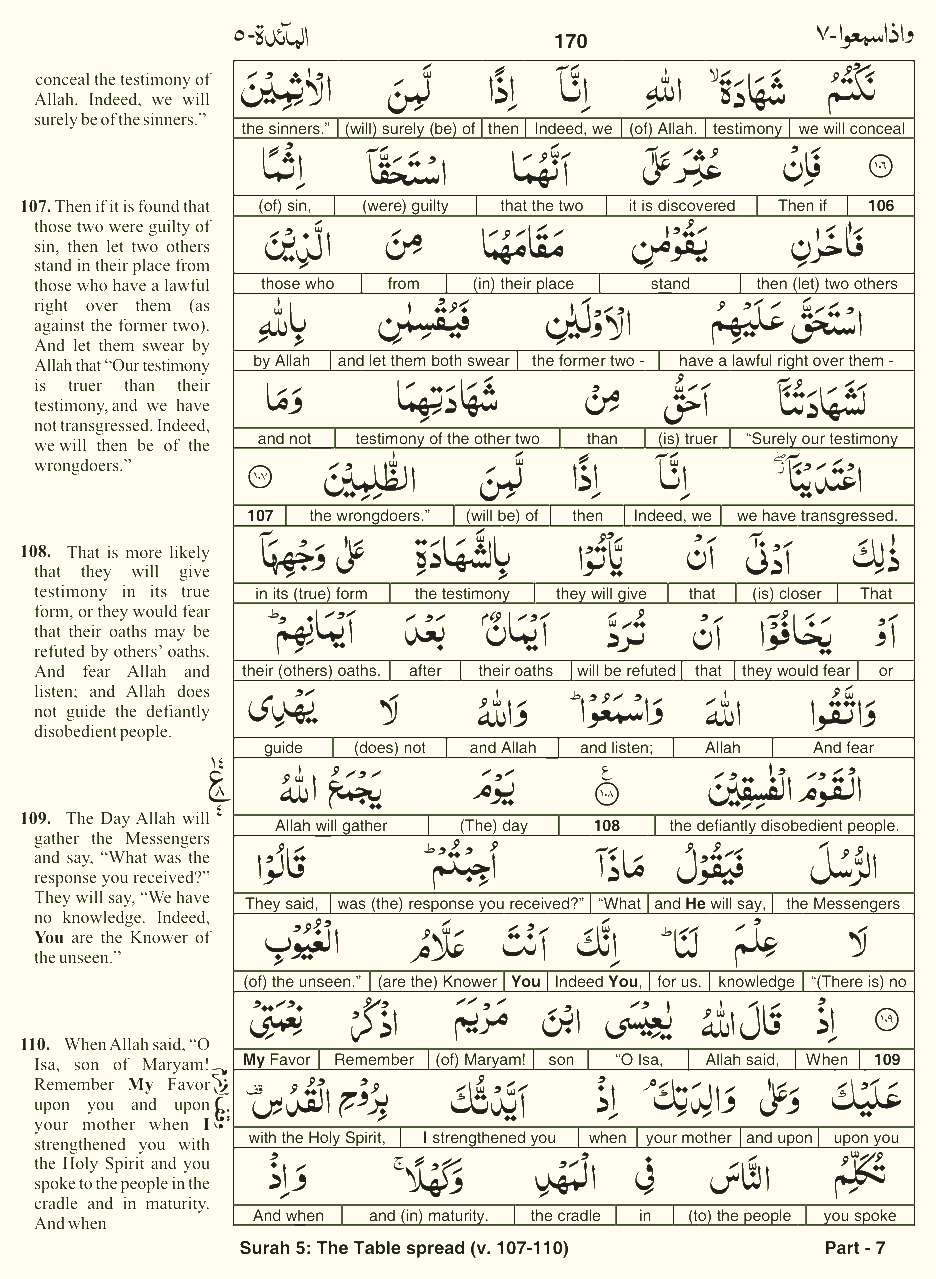 المآئدة-٥
170
واذاسمعوا-٧
conceal the testimony of
Allah. Indeed, we will
surely be of the sinners.”
107. Then if it is found that
those two were guilty of
sin, then let two others
stand in their place from
those who have a lawful
right over them (as
against the former two).
And let them swear by
Allah that “Our testimony
is truer than their
testimony, and we have
not transgressed. Indeed,
we will then be of the
wrongdoers.”
108. That is more likely
that they will give
testimony in its true
form, or they would fear
that their oaths may be
refuted by others’ oaths.
And fear Allah and
listen; and Allah does
not guide the defiantly
disobedient people.
109. The Day Allah will
gather the Messengers
and say, “What was the
response you received?”
They will say, “We have
no knowledge. Indeed,
You are the Knower of
the unseen.”
110. When Allah said, “O
Isa, son of Maryam!
Remember My Favor
upon you and upon
your mother when I
strengthened you with
the Holy Spirit and you
spoke to the people in the
cradle and in maturity.
And when
نَكْتُمُ شَهَادَةَ ۙ اللّٰهِ اِنَّآ اِذًا لَّمِنَ الْاٰثِمِيْنَ
the sinners.” (will) surely (be) of then Indeed, we (of) Allah. testimony we will conceal
١٠٦ فَاِنْ عُثِرَ عَلٰٓى اَنَّهُمَا اسْتَحَقَّآ اِثْمًا
(of) sin, (were) guilty that the two it is discovered Then if 106
فَاٰخَرٰنِ يَقُوْمٰنِ مَقَامَهُمَا مِنَ الَّذِيْنَ
those who from (in) their place stand then (let) two others
اسْتَحَقَّ عَلَيْهِمُ الْاَوْلَيٰنِ فَيُقْسِمٰنِ بِاللّٰهِ
by Allah and let them both swear the former two - have a lawful right over them -
لَشَهَادَتُنَآ اَحَقُّ مِنْ شَهَادَتِهِمَا وَمَا
and not testimony of the other two than (is) truer “Surely our testimony
اعْتَدَيْنَآ ۖ اِنَّآ اِذًا لَّمِنَ الظّٰلِمِيْنَ ١٠٧
107 the wrongdoers.” (will be) of then Indeed, we we have transgressed.
ذٰلِكَ اَدْنٰٓى اَنْ يَّاْتُوْا بِالشَّهَادَةِ عَلٰى وَجْهِهَآ
in its (true) form the testimony they will give that (is) closer That
اَوْ يَخَافُوْٓا اَنْ تُرَدَّ اَيْمَانٌۢ بَعْدَ اَيْمَانِهِمْ ؕ
their (others) oaths. after their oaths will be refuted that they would fear or
وَاتَّقُوا اللّٰهَ وَاسْمَعُوْا ؕ وَاللّٰهُ لَا يَهْدِى
guide (does) not and Allah and listen; Allah And fear
الْقَوْمَ الْفٰسِقِيْنَ ١٠٨ ع يَوْمَ يَجْمَعُ اللّٰهُ ١٤ ع ٨ ٤
Allah will gather (The) day 108 the defiantly disobedient people.
الرُّسُلَ فَيَقُوْلُ مَاذَآ اُجِبْتُمْ ؕ قَالُوْا
They said, was (the) response you received?” “What and He will say, the Messengers
لَا عِلْمَ لَنَا ؕ اِنَّكَ اَنْتَ عَلَّامُ الْغُيُوْبِ
(of) the unseen.” (are the) Knower You Indeed You, for us. knowledge “(There is) no
١٠٩ اِذْ قَالَ اللّٰهُ يٰعِيْسَى ابْنَ مَرْيَمَ اذْكُرْ نِعْمَتِيْ
My Favor Remember (of) Maryam! son “O Isa, Allah said, When 109
عَلَيْكَ وَعَلٰى وَالِدَتِكَ ۘ اِذْ اَيَّدْتُّكَ بِرُوْحِ الْقُدُسِ قف
with the Holy Spirit, I strengthened you when your mother and upon upon you
تُكَلِّمُ النَّاسَ فِي الْمَهْدِ وَكَهْلًا ۚ وَاِذْ
And when and (in) maturity. the cradle in (to) the people you spoke
Surah 5: The Table spread (v. 107-110)
Part - 7